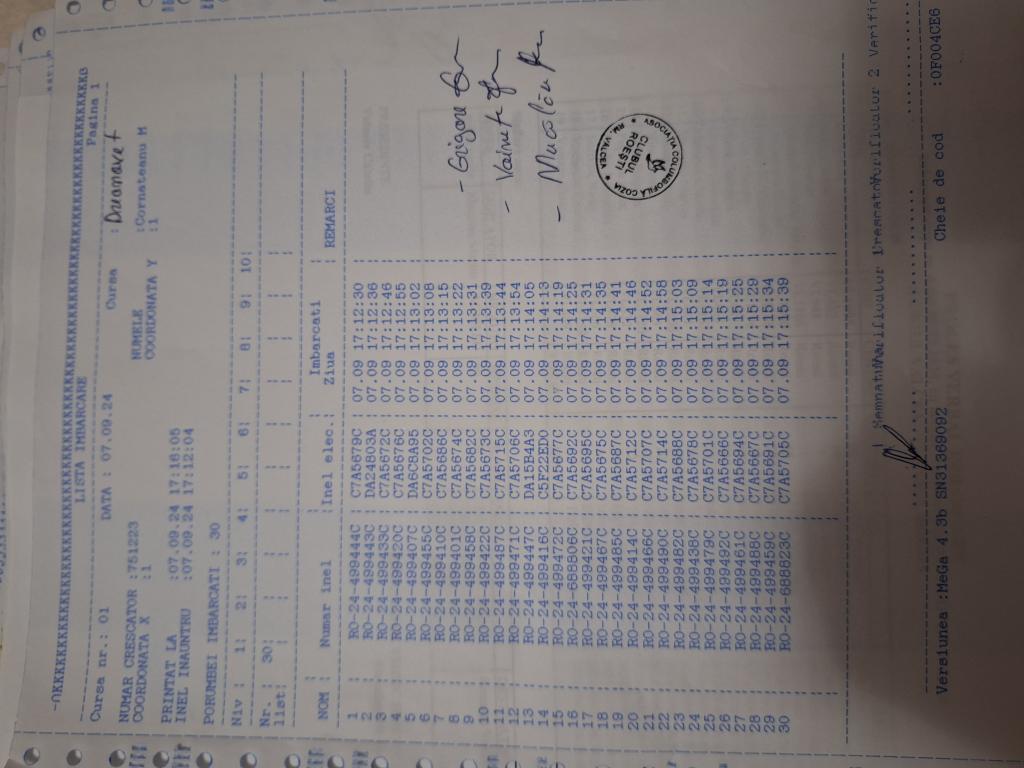 LISTA IMBARCARE
Pagina 1
Cursa nr.: 01 DATA : 07.09.24 Cursa :
NUMAR CRESCATOR :751223 NUMELE :Cornateanu M
COORDONATA X :1 COORDONATA Y :1
PRINTAT LA :07.09.24 17:16:05
INEL INAUNTRU :07.09.24 17:12:04
PORUMBEI IMBARCATI : 30
Niv : 1: 2: 3: 4: 5: 6: 7: 8: 9: 10:
Nr. : 30: : : : : : : : : :
list: : : : : : : : : : :
NOM : Numar inel :Inel elec.: Imbarcati : REMARCI
Ziua
1 : RO-24-499444C : C7A5679C : 07.09 17:12:30
2 : RO-24-499443C : DA24803A : 07.09 17:12:36
3 : RO-24-499433C : C7A5672C : 07.09 17:12:46
4 : RO-24-499420C : C7A5676C : 07.09 17:12:55
5 : RO-24-499407C : DA6C9A95 : 07.09 17:13:02
6 : RO-24-499455C : C7A5702C : 07.09 17:13:08
7 : RO-24-499410C : C7A5686C : 07.09 17:13:15
8 : RO-24-499401C : C7A5674C : 07.09 17:13:22
9 : RO-24-499458C : C7A5682C : 07.09 17:13:31
10 : RO-24-499422C : C7A5673C : 07.09 17:13:39
11 : RO-24-499487C : C7A5715C : 07.09 17:13:44
12 : RO-24-499471C : C7A5706C : 07.09 17:13:54
13 : RO-24-499447C : DA15B4A3 : 07.09 17:14:05
14 : RO-24-499416C : C5F22ED0 : 07.09 17:14:13
15 : RO-24-499472C : C7A5677C : 07.09 17:14:19
16 : RO-24-688806C : C7A5692C : 07.09 17:14:25
17 : RO-24-499421C : C7A5695C : 07.09 17:14:31
18 : RO-24-499467C : C7A5675C : 07.09 17:14:35
19 : RO-24-499485C : C7A5687C : 07.09 17:14:41
20 : RO-24-499414C : C7A5712C : 07.09 17:14:46
21 : RO-24-499466C : C7A5707C : 07.09 17:14:52
22 : RO-24-499490C : C7A5714C : 07.09 17:14:58
23 : RO-24-499482C : C7A5688C : 07.09 17:15:03
24 : RO-24-499438C : C7A5678C : 07.09 17:15:09
25 : RO-24-499479C : C7A5701C : 07.09 17:15:14
26 : RO-24-499492C : C7A5666C : 07.09 17:15:19
27 : RO-24-499461C : C7A5694C : 07.09 17:15:25
28 : RO-24-499488C : C7A5667C : 07.09 17:15:29
29 : RO-24-499459C : C7A5691C : 07.09 17:15:34
30 : RO-24-688823C : C7A5705C : 07.09 17:15:39
- Grigore
ASOCIATIA COLUMBOFILA COZIA
RM. VALCEA
CLUBUL
ROESTI
Versiunea :MeGa 4.3b SN31369092 Cheie de cod :0F004CE6